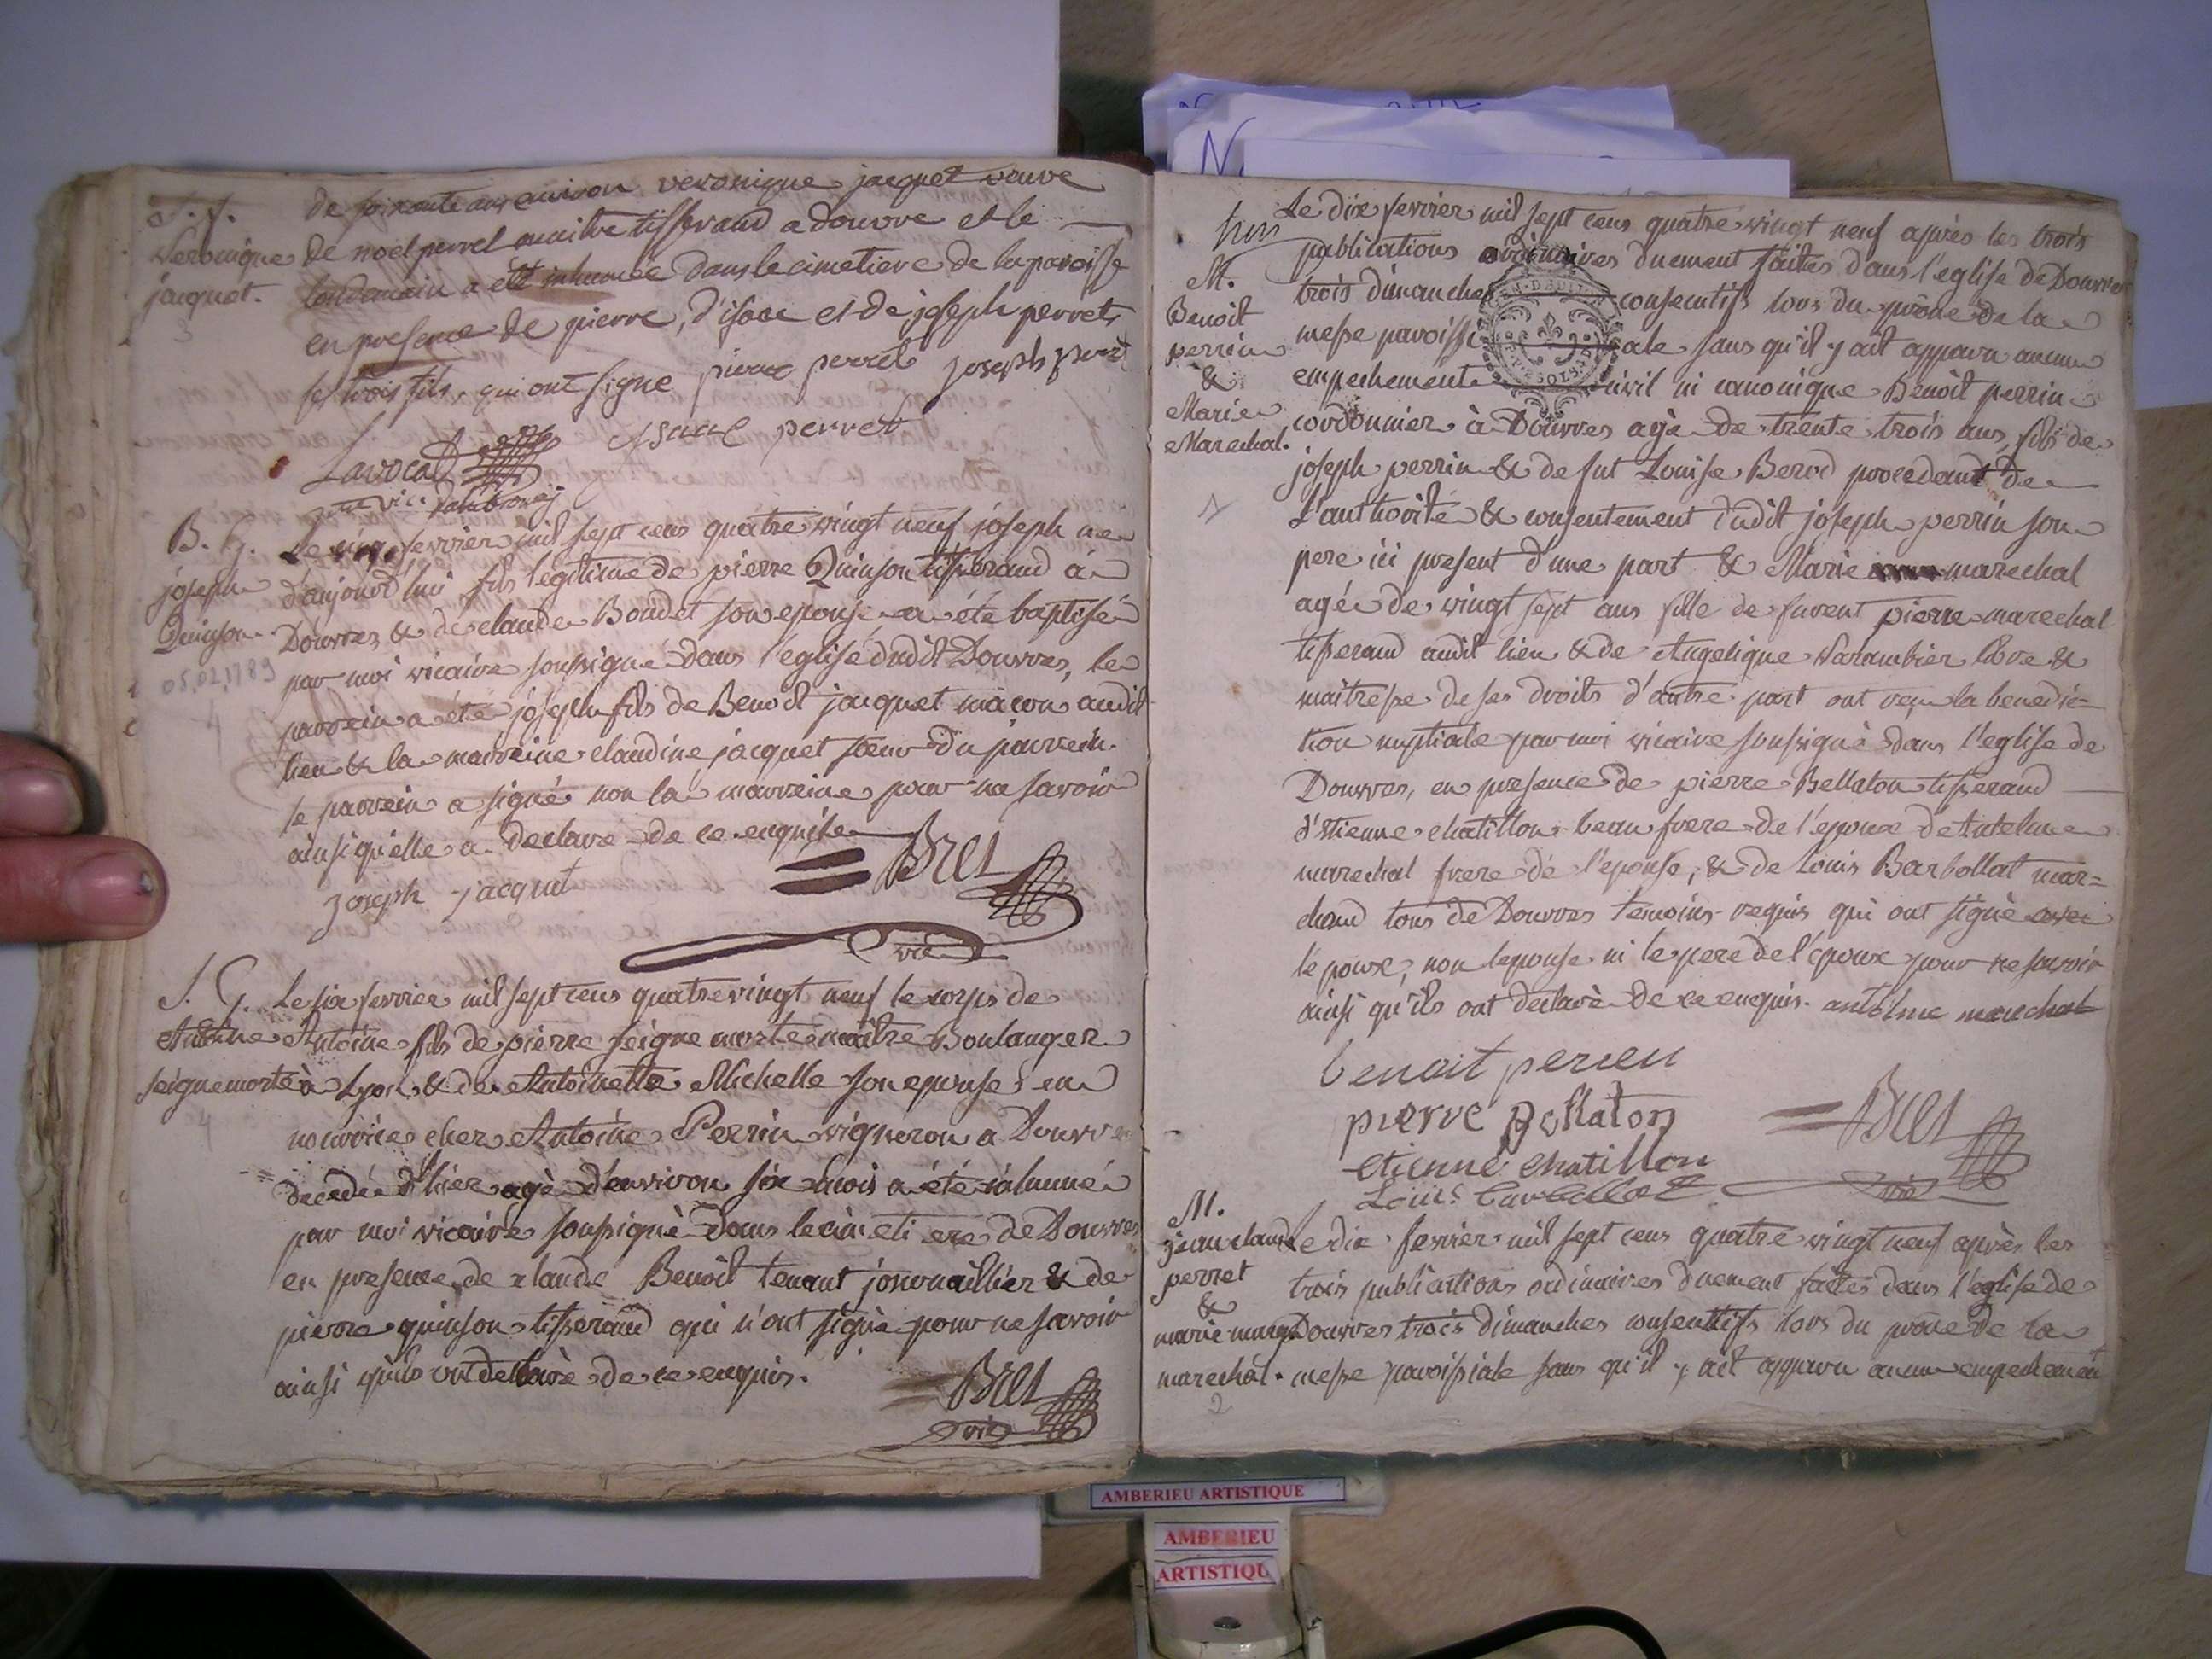 S. J.
Veronique
jacquet.
3
de soixante ans environ veronique jacquet veuve
de noel perret maitre tisserand a douvre et le
lendemain a été inhumée dans le cimetiere de la paroisse
en presence de pierre, d'isaac et de joseph perret
ses trois fils, qui ont signe pierre perret joseph perret
isaac perret
Lavocat
vic. d'ambronay
B. G.
joseph
Quinson
05.02.1789
4
Le cinq fevrier mil sept cens quatre vingt neuf joseph ne
d'aujourd'hui fils legitime de pierre Quinson tisserand à
Douvres & de claude Boudet son epouse a été baptisé
par moi vicaire soussigné dans l'eglise dudit Douvres, le
parrein a été joseph fils de Benoît jacquet maçon audit
lieu & la marreine claudine jacquet soeur du parrein.
le parrein a signé non la marreine pour ne savoir
ainsi qu'elle a declaré de ce enquise
Bret
joseph jacquet
vic
S. G.
Antoine
seignemorte
4
Le six fevrier mil sept cens quatre vingt neuf le corps de
Antoine fils de pierre seigne morte maître Boulanger
à Lyon & de Antoinette Michelle son epouse en
nourrice chez Antoine Perrin vigneron a Douvres
decedé d'hier agé d'environ six mois a été inhumé
par moi vicaire soussigné dans le cimetiere de Douvres
en presence de claude Benoît tenant journaillier & de
pierre quinson tisserand qui n'ont signé pour ne savoir
ainsi qu'ils ont declaré de ce enquis.
Bret
vic
trois
M.
Benoît
perrin
&
Marie
Marechal.
1
Le dix fevrier mil sept cens quatre vingt neuf après les trois
publications ordinaires duement faites dans l'eglise de Douvres
trois dimanches consecutifs lors du prône de la
messe paroissiale sans qu'il y ait apparu aucun
empechement civil ni canonique Benoît perrin
cordonnier à Douvres agé de trente trois ans, fils de
joseph perrin & de fut Louise Berod procedant de
L'authorité & consentement dudit joseph perrin son
pere ici present d'une part & Marie marechal
agée de vingt sept ans fille de furent pierre marechal
tisserand audit lieu & de Angelique Varambier libre &
maîtresse de ses droits d'autre part ont reçu la benedic=
tion nuptiale par moi vicaire soussigné dans l'eglise de
Douvres, en presence de pierre Bellaton tisserand
d'Etienne chatillon beau frere de l'epoux de Antelme
marechal frere de l'epouse, & de Louis Barbollat mar=
chand tous de Douvres temoins requis qui ont signé avec
l'epoux, non l'epouse ni le pere de l'époux pour ne savoir
ainsi qu'ils ont declaré de ce enquis. antelme marechal
benoit perien
pierre Bellaton
Bret
etienne chatillon
Louis Barbollat
vic
M.
jean claude
perret
&
marie marg
marechal.
2
Le dix fevrier mil sept cens quatre vingt neuf après les
trois publications ordinaires duement faites dans l'eglise de
Douvres trois dimanches consecutifs lors du prône de la
messe paroissiale sans qu'il y ait apparu aucun empechement
AMBERIEU ARTISTIQUE
AMBERIEU
ARTISTIQU